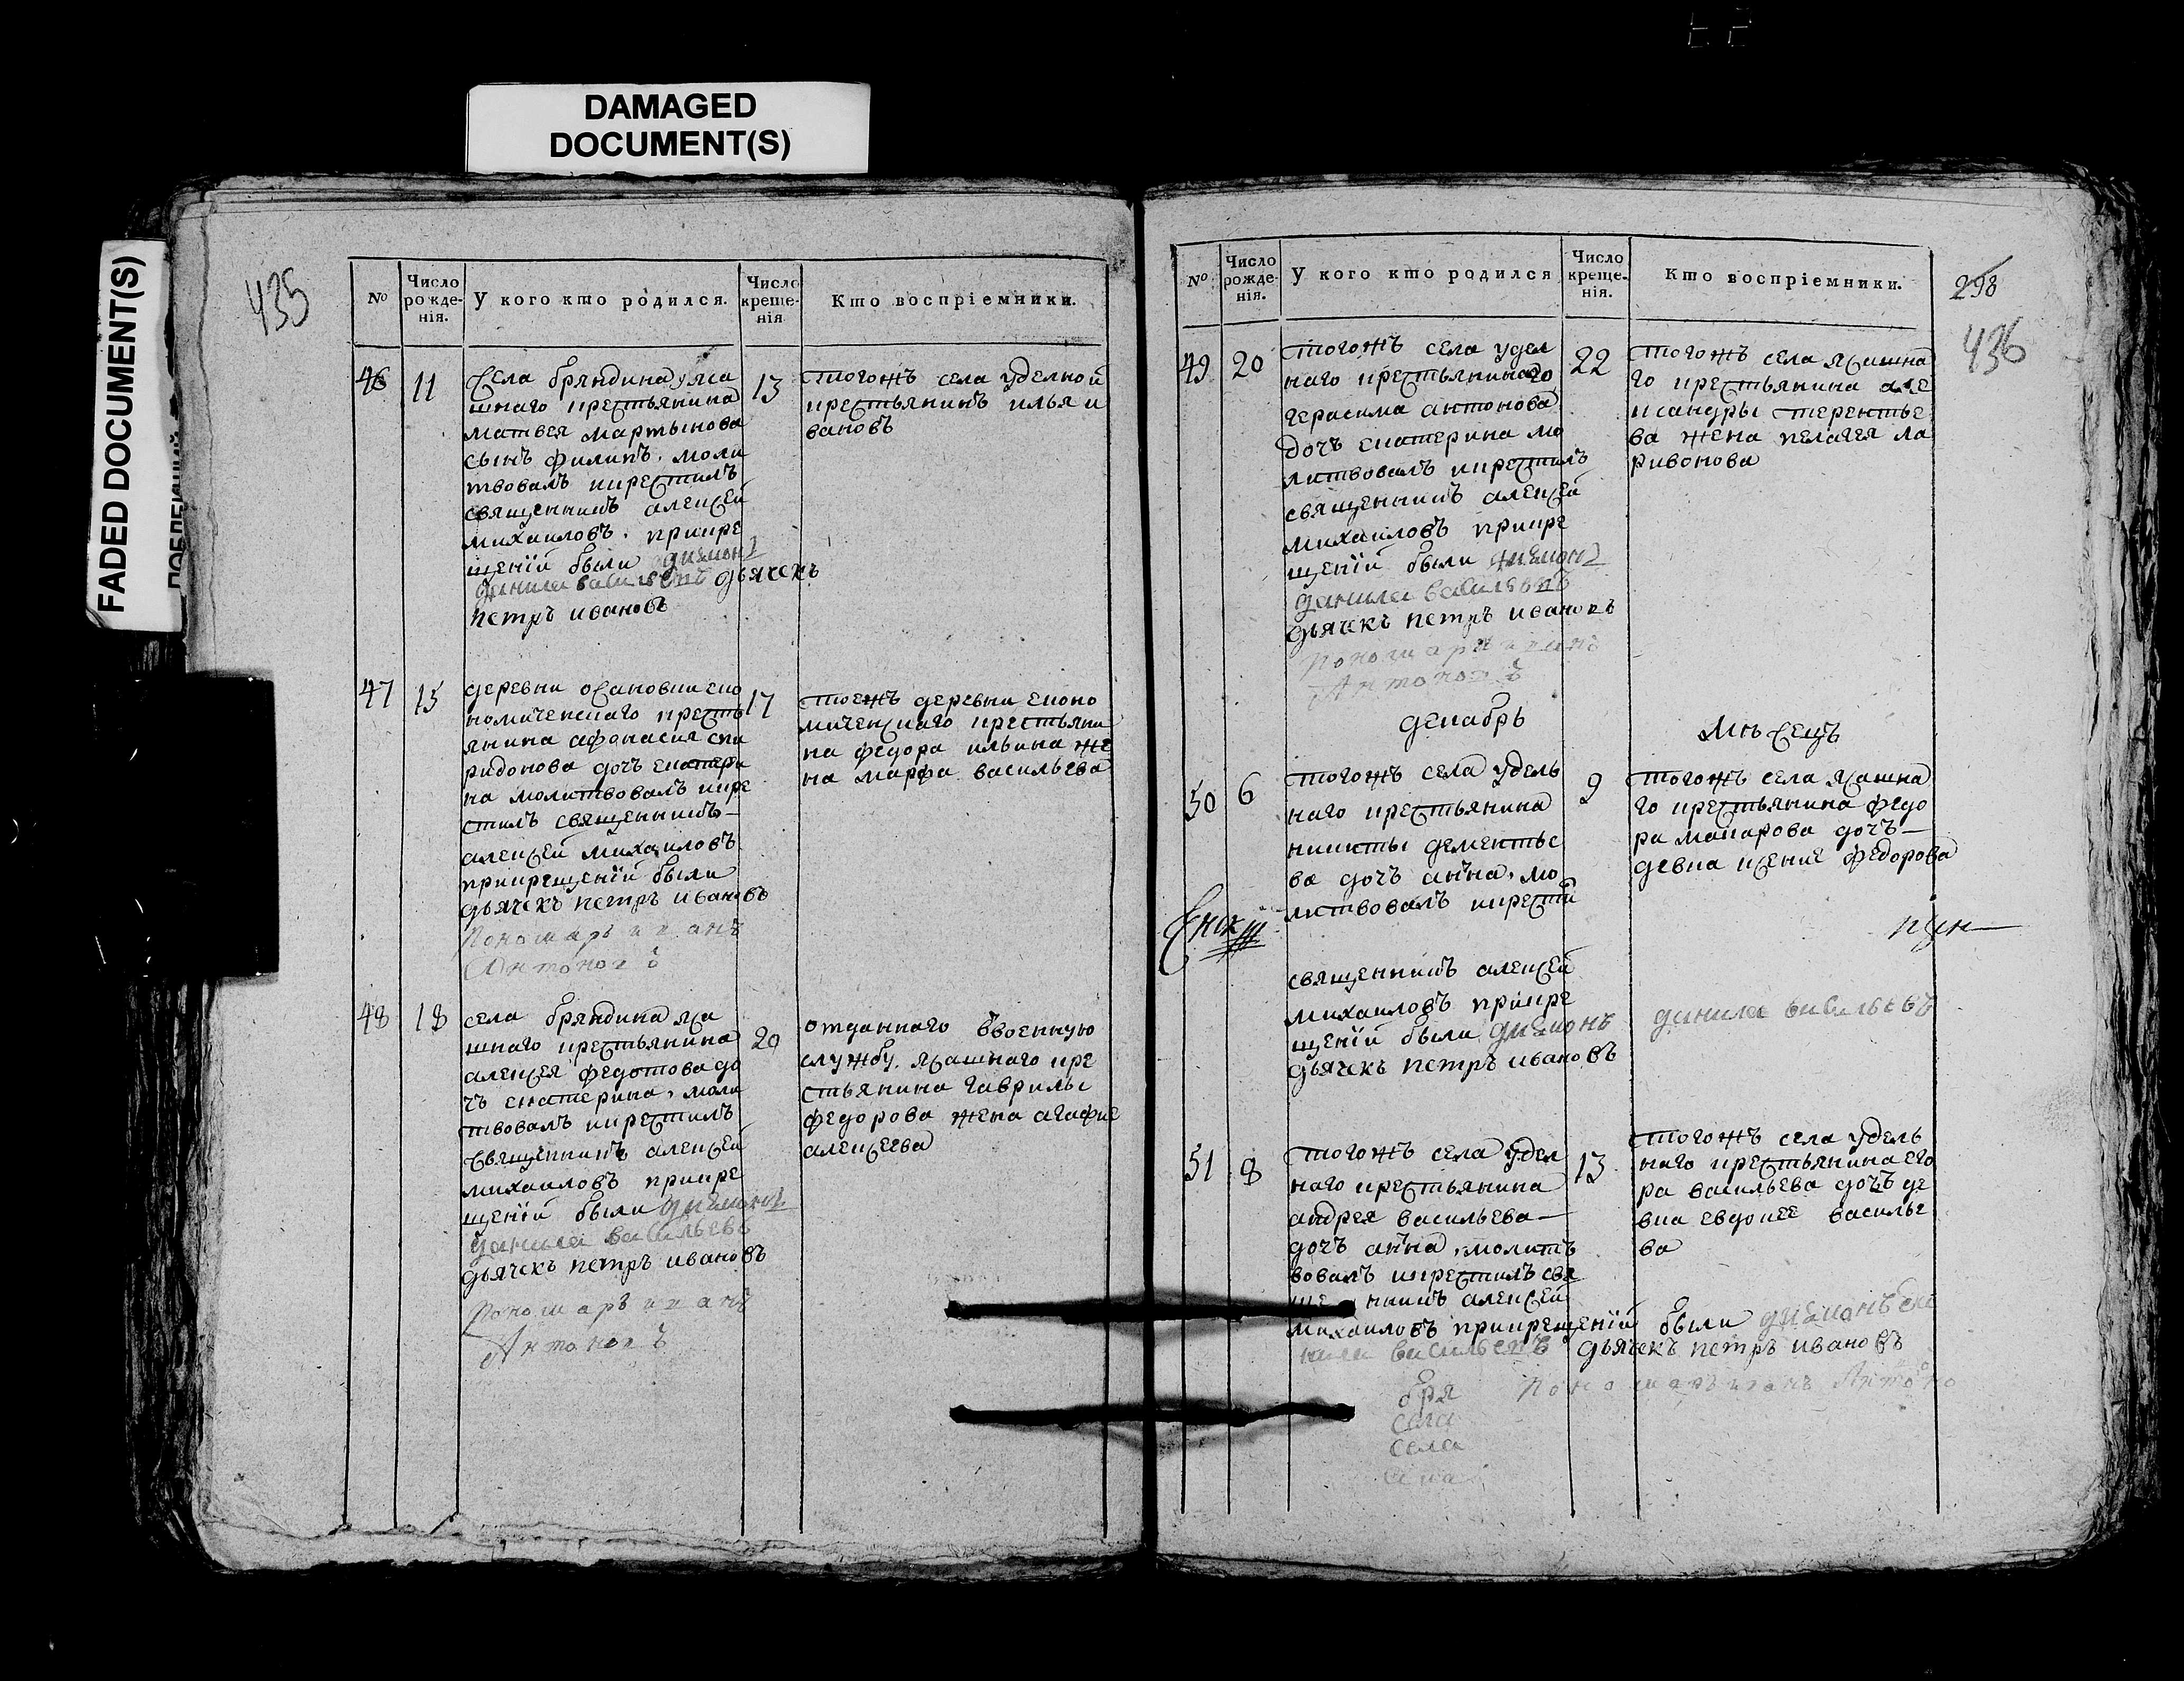 DAMAGED
DOCUMENT(S)
FADED DOCUMENT(S)
435
№
Число рожденія.
У кого кто родился.
Число крещенія
Кто воспріемники.
46
11
Села бряндина яса
шнаго крестьянина
матвея мартынова
сынъ филипъ. моли
твовалъ икрестилъ
священникъ алексей
михаиловъ. прикре
щеніи были диаконъ
данила васильевъ дьячекъ
петръ ивановъ
13
тогожъ села уделной
крестьянинъ илья и
вановъ
47
15
деревни осановки еко
номическаго кресть
янина афонасия спи
ридонова дочь екатери
на молитвовалъ икре
стилъ священникъ
алексей михаиловъ
прикрещеніи были
дьячекъ петръ ивановъ
пономарь иванъ
Антоновъ
17
тоежъ деревни еконо
мическаго крестьяни
на федора ильина же
на марфа васильева
48
18
села бряндина яса
шнаго крестьянина
алексея федотова до
чь екатерина, моли
твовалъ икрестилъ
священникъ алексей
михаиловъ прикре
щеніи были диаконъ
данила васильевъ
дьячекъ петръ ивановъ
пономарь иванъ
Антоновъ
20
отданнаго ввоенную
службу. ясашнаго кре
стьянина гаврилы
федорова жена агафие
алексеева
298
436
№
Число рожденія.
У кого кто родился
Число крещенія.
Кто воспріемники.
49
20
тогожъ села удел
наго крестьянина
герасима антонова
дочь екатерина мо
литвовалъ икрестилъ
священникъ алексей
михаиловъ прикре
щеніи были диаконъ
данила васильевъ
дьячекъ петръ ивановъ
пономарь иванъ
Антоновъ
22
тогожъ села ясашна
го крестьянина але
ксандры терентье
ва жена пелагея ла
ривонова
декабрь
мѣсецъ
50
6
тогожъ села удель
наго крестьянина
никиты дементье
ва дочь анна, мо
литвовалъ икрести
священникъ алексей
михаиловъ прикре
щеніи были диаконъ данила васильевъ
дьячекъ петръ ивановъ
9
тогожъ села ясашна
го крестьянина федо
ра макарова дочь
девка ксение федорова
51
8
тогожъ села удел
наго крестьянина
андрея васильева
дочь анна, молит
вовалъ икрестилъ свя
ще нникъ алексей
михаиловъ прикрещеніи были диаконъ да
нила васильевъ дьячекъ петръ ивановъ
пономарь иванъ Антоно
13
тогожъ села удель
наго крестьянина его
ра васильева дочь де
вка евдокее василье
ва
бря
села
села